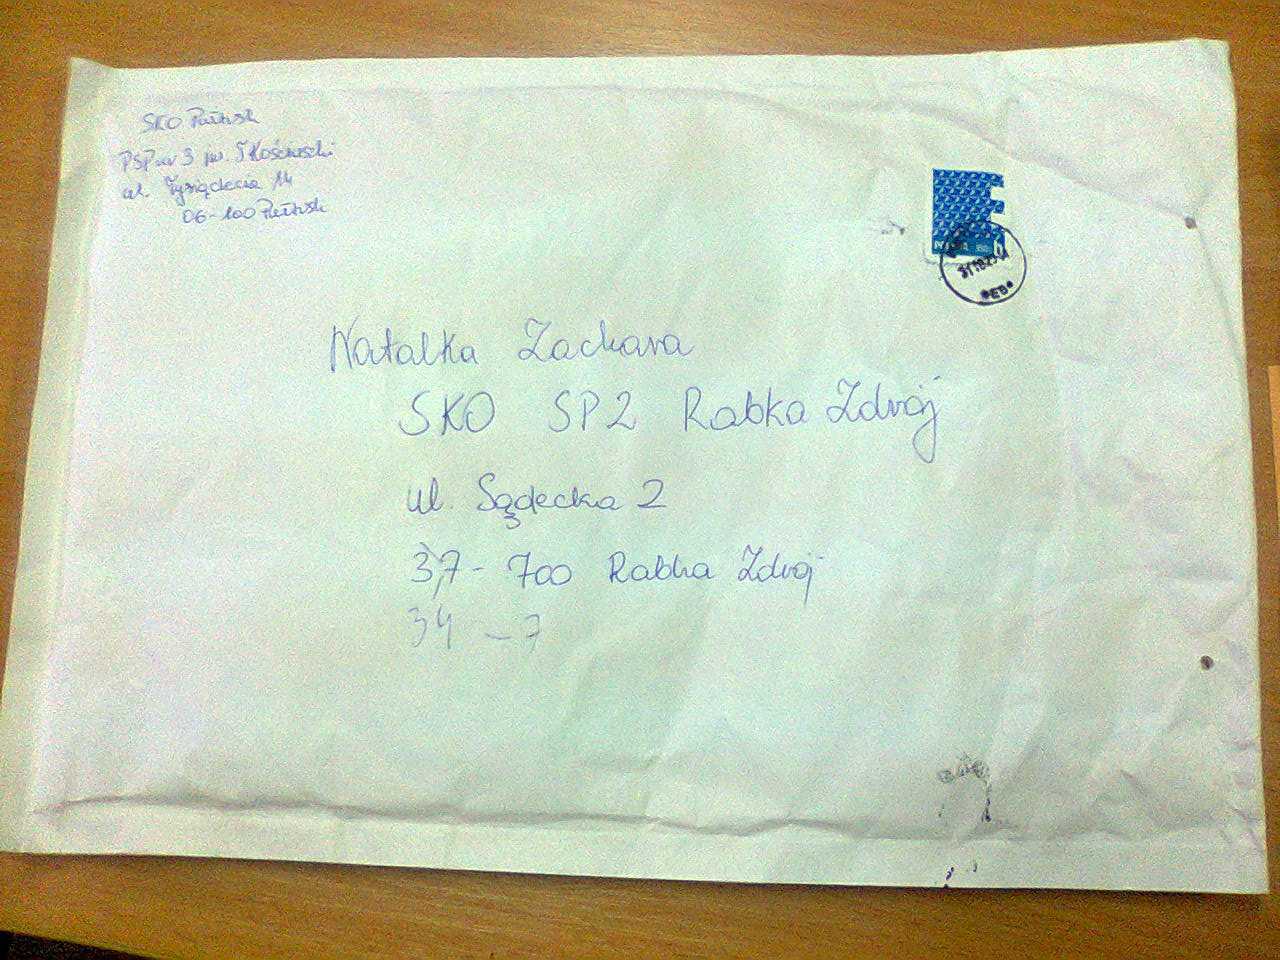 SKO Pułtusk
PSP nr 3 im. T. Kościuszki
ul. Tysiąclecia 14
06-100 Pułtusk
Natalka Zachara
SKO SP2 Rabka Zdrój
ul. Sądecka 2
37-700 Rabka Zdrój
34 - 7